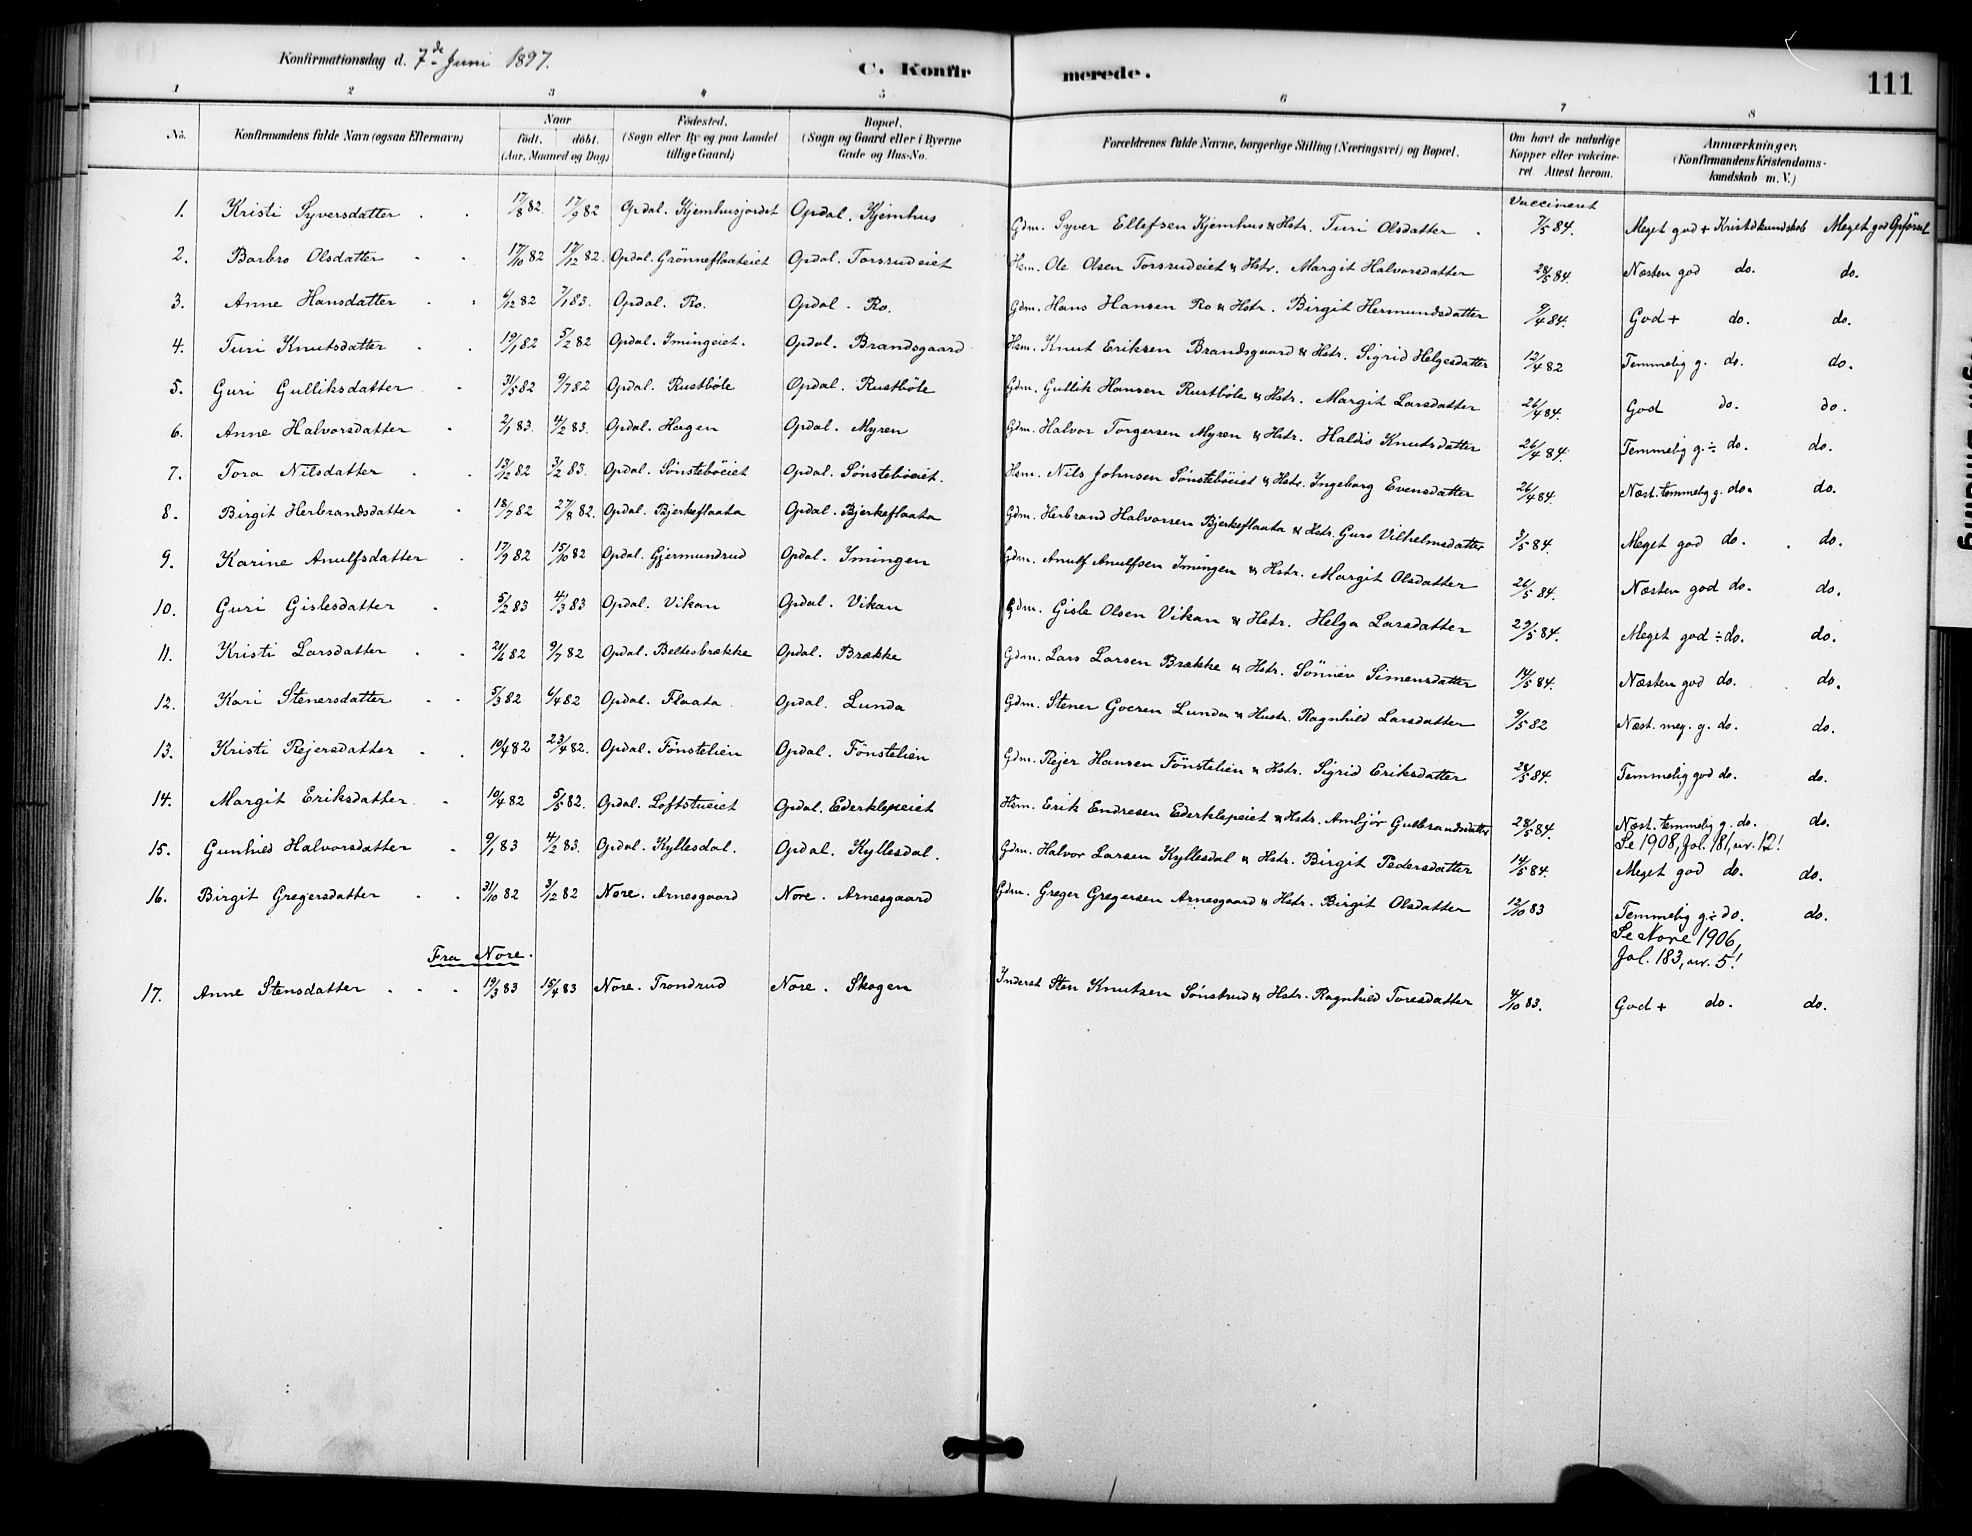 Konfirmationsdag d. 7de Juni 1897.
C. Konfirmerede.
111
1 2 3 4 5 6 7 8
No. Konfirmandens fulde Navn (ogsaa Efternavn) Naar födt. döbt. (Aar, Maaned og Dag) Födested. (Sogn eller By og paa Landet tillige Gaard) Bopæl. (Sogn og Gaard eller i Byerne Gade og Hus-No. Forældrenes fulde Navne, borgerlige Stilling (Næringsvei) og Bopæl. Om havt de naturlige Kopper eller vaccineret. Attest herom. Anmærkninger. (Konfirmandens Kristendomskundskab m. V.)
Vaccineret
1. Kristi Syversdatter 17/8 82. 17/9 82 Opdal. Kjemhusjordet Opdal. Kjemhus Gdm. Syver Ellefsen Kjemhus & Hstr. Turi Olsdatter 7/5 84. Meget god + Kristdkundskab Meget god Opförsel
2. Barbro Olsdatter 17/10 82 17/12 82. Opdal. Grönneflaateiet Opdal. Torsrudeiet Hsm. Ole Olsen Torsrudeiet & Hstr. Margit Halvorsdatter 28/5 84. Næsten god do. do.
3. Anne Hansdatter 6/12 82 7/1 83. Opdal. Ro. Opdal. Ro. Gdm. Hans Hansen Ro & Hstr. Birgit Hermundsdatter 9/4 84. God + do. do.
4. Turi Knutsdatter 19/1 82 5/2 82 Opdal. Imingeiet. Opdal. Brandsgaard Hsm. Knut Eriksen Brandsgaard & Hstr. Sigrid Helgesdatter 12/4 82 Temmelig g. do. do.
5. Guri Gulliksdatter 31/5 82 9/7 82 Opdal. Rustböle Opdal. Rustböle Gdm. Gullik Hansen Rustböle & Hstr. Margit Larsdatter 26/4 84. God do. do.
6. Anne Halvorsdatter 2/1 83. 4/2 83. Opdal. Hagen Opdal. Myren Gdm. Halvor Torgersen Myren & Hstr. Haldis Knutsdatter 26/4 84. Temmelig g. ÷ do. do.
7. Tora Nilsdatter 13/12 82 3/2 83. Opdal. Sönsteböeiet Opdal. Sönsteböeiet. Hsm. Nils Johnsen Sönsteböeiet & Hstr. Ingeborg Evensdatter 26/4 84. Næst. temmelig g. do. do.
8. Birgit Herbrandsdatter 18/7 82 27/8 82. Opdal. Bjerkeflaata Opdal. Bjerkeflaata Gdm. Herbrand Halvorsen Bjerkeflaata & Hstr. Guro Vilhelmsdatter 3/5 84. Meget god do. do.
9. Karine Anulfsdatter 17/9 82 15/10 82 Opdal. Gjermundrud Opdal. Imingen Gdm. Anulf Anulfsen Imingen & Hstr. Margit Olsdatter 26/5 84. Næsten god do. do.
10. Guri Gislesdatter 5/2 83 4/3 83 Opdal. Vikan Opdal. Vikan Gdm. Gisle Olsen Vikan & Hstr. Helga Larsdatter 29/5 84. Meget god ÷ do. do.
11. Kristi Larsdatter 21/6 82 9/7 82 Opdal. Beltesbrække Opdal. Brække Gdm. Lars Larsen Brække & Hstr. Sönnev Simensdatter 14/5 84. Næsten god do. do.
12. Kari Stenersdatter 5/3 82 6/4 82 Opdal. Flaata Opdal. Lunda Gdm. Stener Goeren Lunda & Hustr. Ragnhild Larsdatter 9/5 82 Næst. meg. g. do. do.
13. Kristi Rejersdatter 10/4 82 23/4 82. Opdal. Fönstelien Opdal. Fönstelien Gdm. Rejer Hansen Fönstelien & Hstr. Sigrid Eriksdatter 28/5 84. Temmelig god do. do.
14. Margit Eriksdatter 10/4 82 5/5 82. Opdal. Loftstueiet Opdal. Ederklepeiet Hsm. Erik Endresen Ederklepeiet & Hstr. Ambjör Gulbrandsdatter 28/5 84. Næst. temmelig g. do. do.
Se 1908, fol. 181, nr. 12!
15. Gunhild Halvorsdatter 9/1 83 4/2 83. Opdal. Kyllesdal. Opdal. Kyllesdal. Gdm. Halvor Larsen Kyllesdal & Hstr. Birgit Pedersdatter 14/5 84. Meget god do. do.
16. Birgit Gregersdatter 31/10 82 3/12 82 Nore. Arnesgaard Nore. Arnesgaard Gdm. Greger Gregersen Arnesgaard & Hstr. Birgit Olsdatter 12/10 83 Temmelig g. ÷ do. do.
Se Nore 1906,
fol. 183, nr. 5!
Fra Nore.
17. Anne Stensdatter 19/3 83 15/4 83 Nore. Trondrud Nore. Skogen Inderst Sten Knutsen Sönstrud & Hstr. Ragnhild Toresdatter 4/10 83. God + do. do.